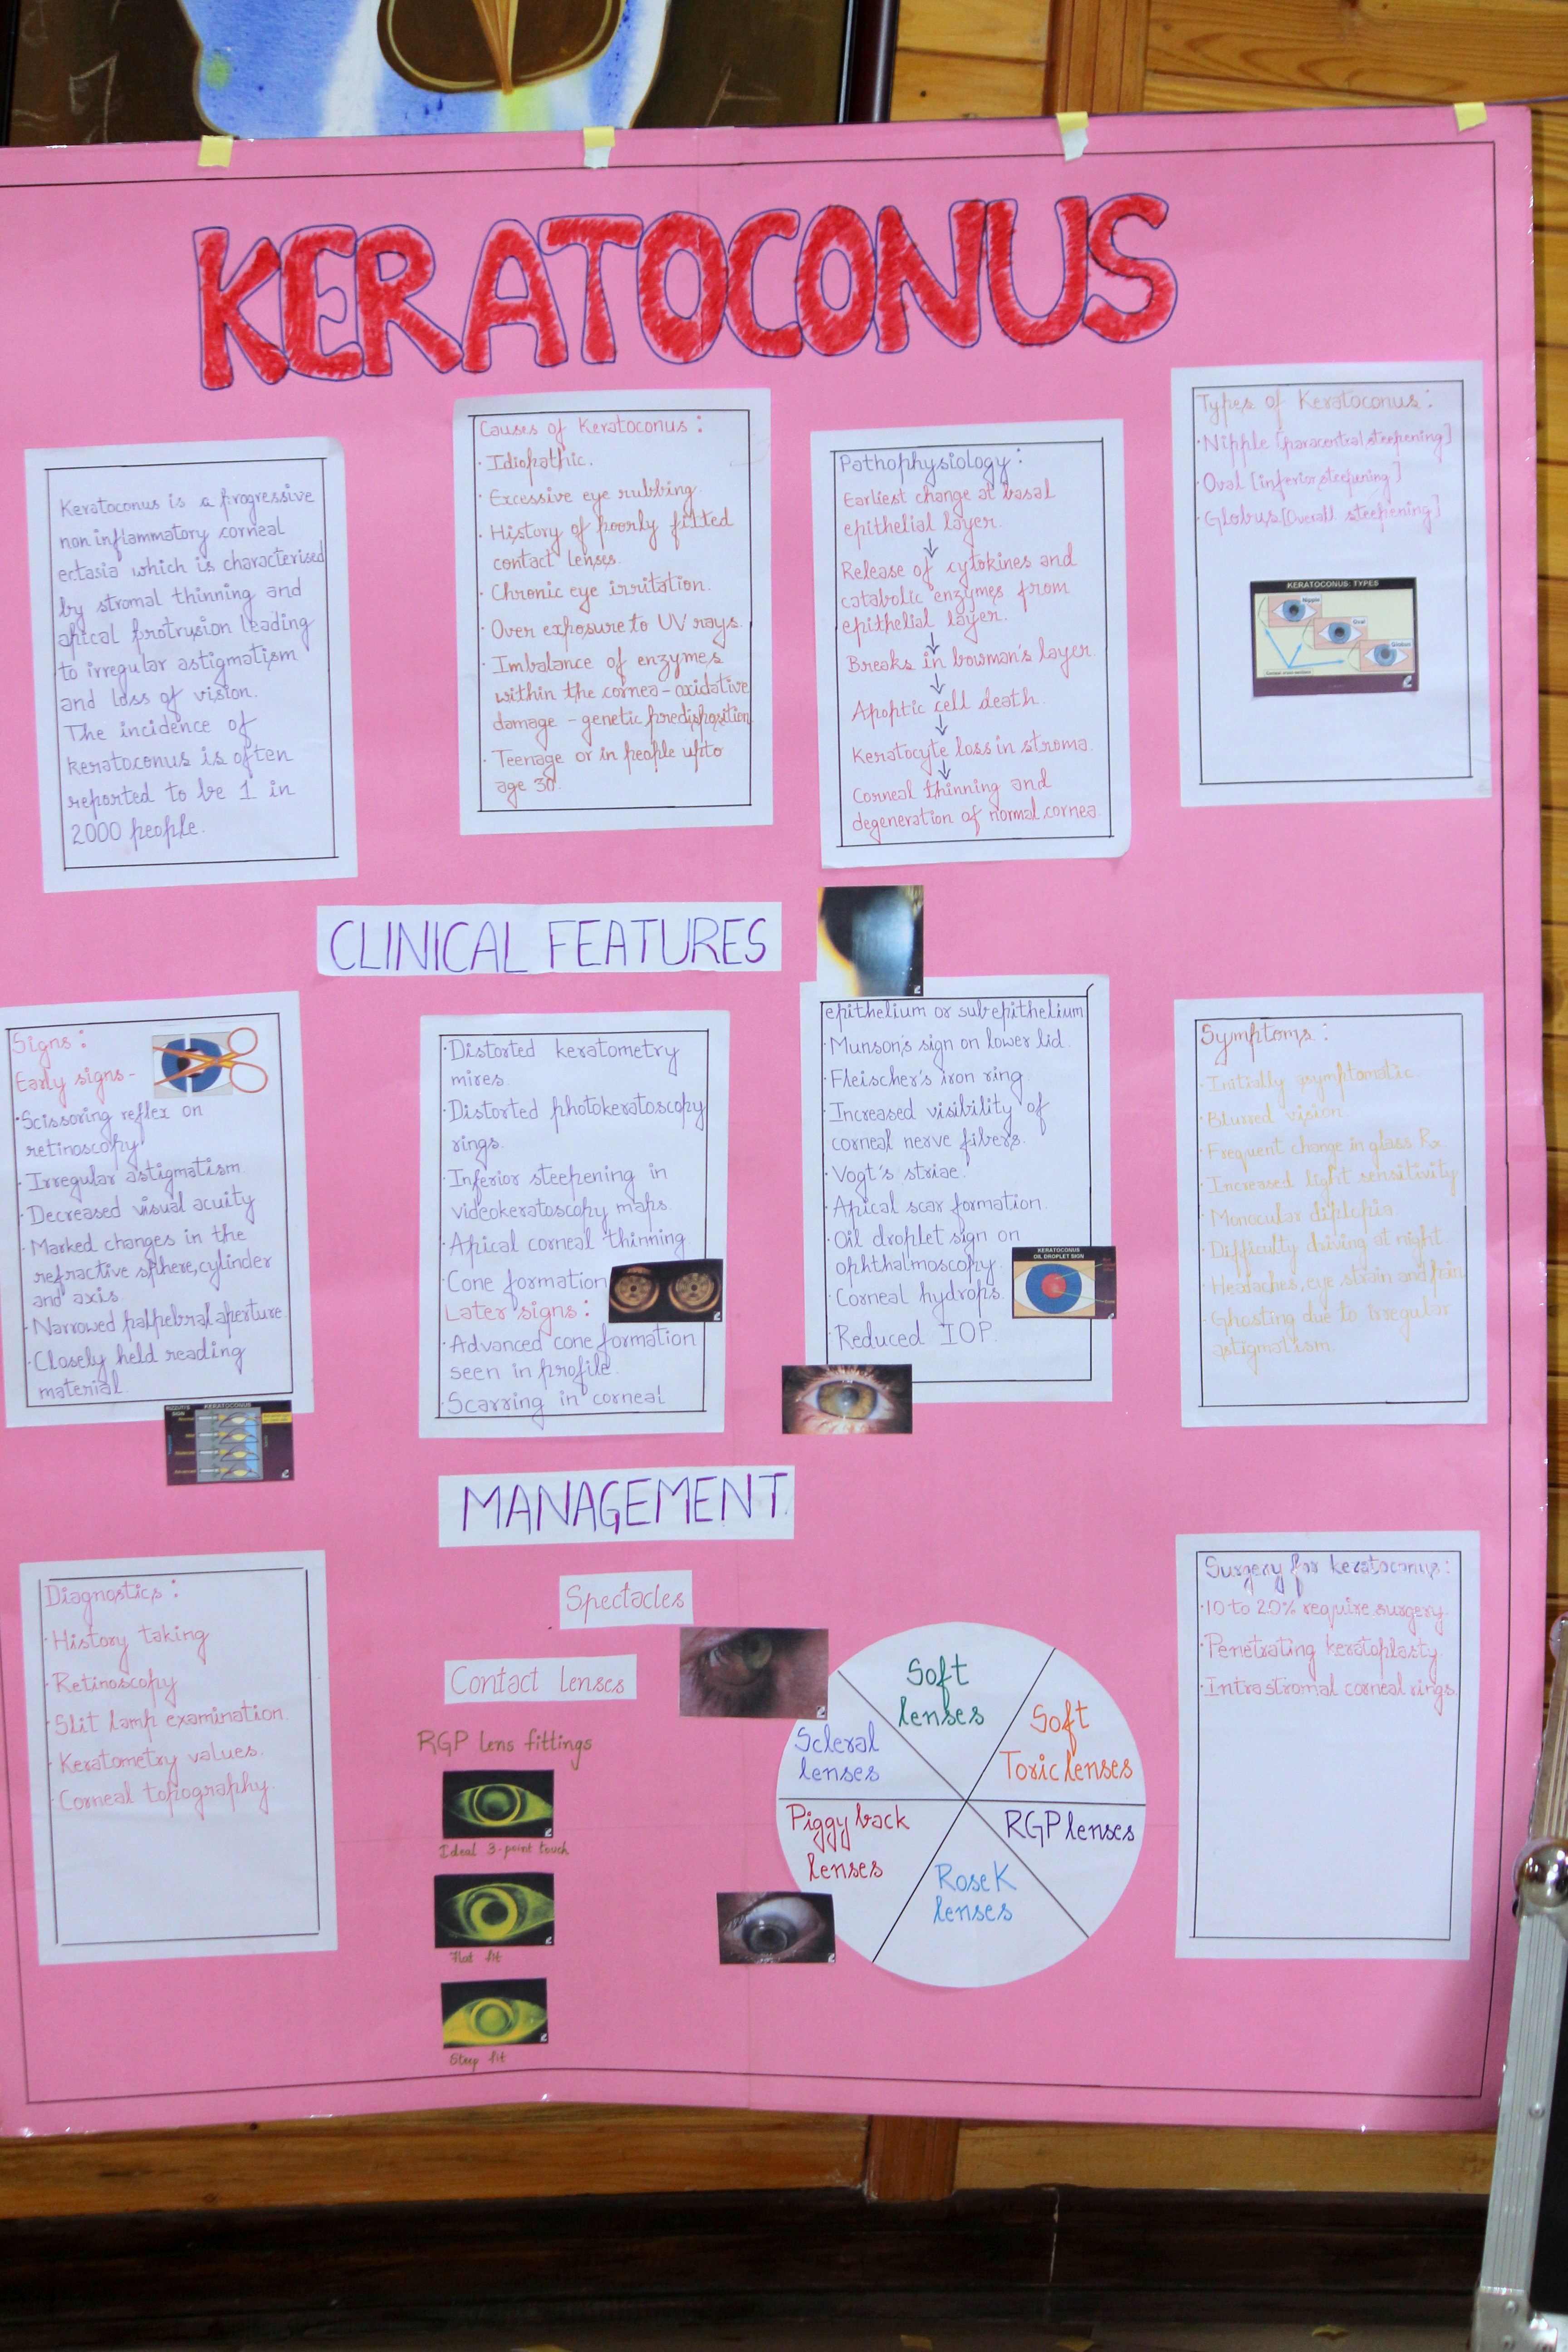 KERATOCONUS
Keratoconus is a progressive
non inflammatory corneal
ectasia which is characterised
by stromal thinning and
apical protrusion leading
to irregular astigmatism
and loss of vision.
The incidence of
keratoconus is often
reported to be 1 in
2000 people.
Causes of Keratoconus :
· Idiopathic.
· Excessive eye rubbing.
· History of poorly fitted
contact lenses.
· Chronic eye irritation.
· Over exposure to UV rays.
· Imbalance of enzymes
within the cornea - oxidative
damage - genetic predisposition
· Teenage or in people upto
age 30.
Pathophysiology :
Earliest change at basal
epithelial layer.
↓
Release of cytokines and
catabolic enzymes from
epithelial layer.
↓
Breaks in bowman's layer.
↓
Apoptic cell death.
↓
Keratocyte loss in stroma.
↓
Corneal thinning and
degeneration of normal cornea.
Types of Keratoconus :
· Nipple [paracentral steepening]
· Oval [inferior steepening]
· Globus [Overall steepening]
KERATOCONUS: TYPES
Nipple
Oval
CLINICAL FEATURES
Signs :
Early signs -
· Scissoring reflex on
retinoscopy
· Irregular astigmatism
· Decreased visual acuity
· Marked changes in the
refractive sphere, cylinder
and axis.
· Narrowed palpebral aperture.
· Closely held reading
material.
SIGN
KERATOCONUS
· Distorted keratometry
mires.
· Distorted photokeratoscopy
rings.
· Inferior steepening in
videokeratoscopy maps.
· Apical corneal thinning
· Cone formation
Later signs :
· Advanced cone formation
seen in profile.
· Scarring in corneal
epithelium or subepithelium
· Munson's sign on lower lid.
· Fleischer's iron ring
· Increased visibility of
corneal nerve fibers.
· Vogt's striae.
· Apical scar formation.
· Oil droplet sign on
ophthalmoscopy.
· Corneal hydrops.
· Reduced IOP.
KERATOCONUS
OIL DROPLET SIGN
Symptoms :
· Initially asymptomatic.
· Blurred vision.
· Frequent change in glass Rx.
· Increased light sensitivity
· Monocular diplopia
· Difficulty driving at night.
· Headaches, eye strain and pain
· Ghosting due to irregular
astigmatism.
MANAGEMENT
Diagnostics :
· History taking
· Retinoscopy
· Slit lamp examination.
· Keratometry values.
· Corneal topography.
Spectacles
Contact lenses
RGP lens fittings
Ideal 3-point touch
Flat fit
Steep fit
Soft
lenses
Soft
Toric lenses
RGP lenses
Rose K
lenses
Piggy back
lenses
Scleral
lenses
Surgery for keratoconus :
· 10 to 20% require surgery.
· Penetrating keratoplasty.
· Intrastromal corneal rings.